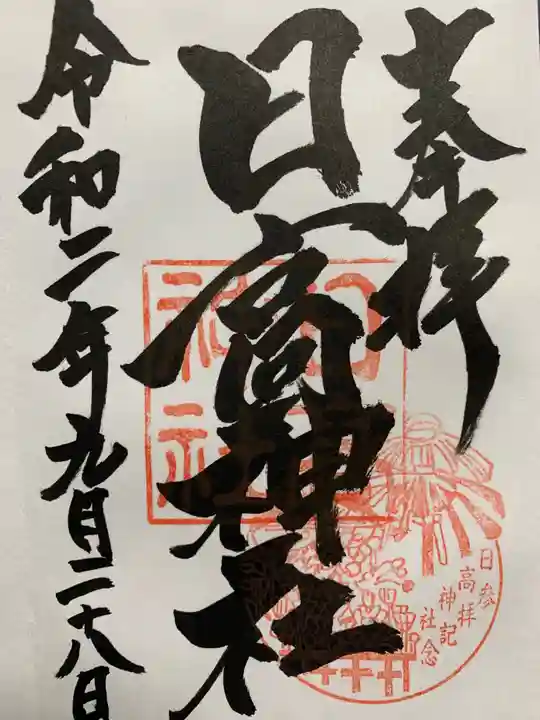 奉拝
日高神社
令和二年九月二十八日
日高神社
参拝記念